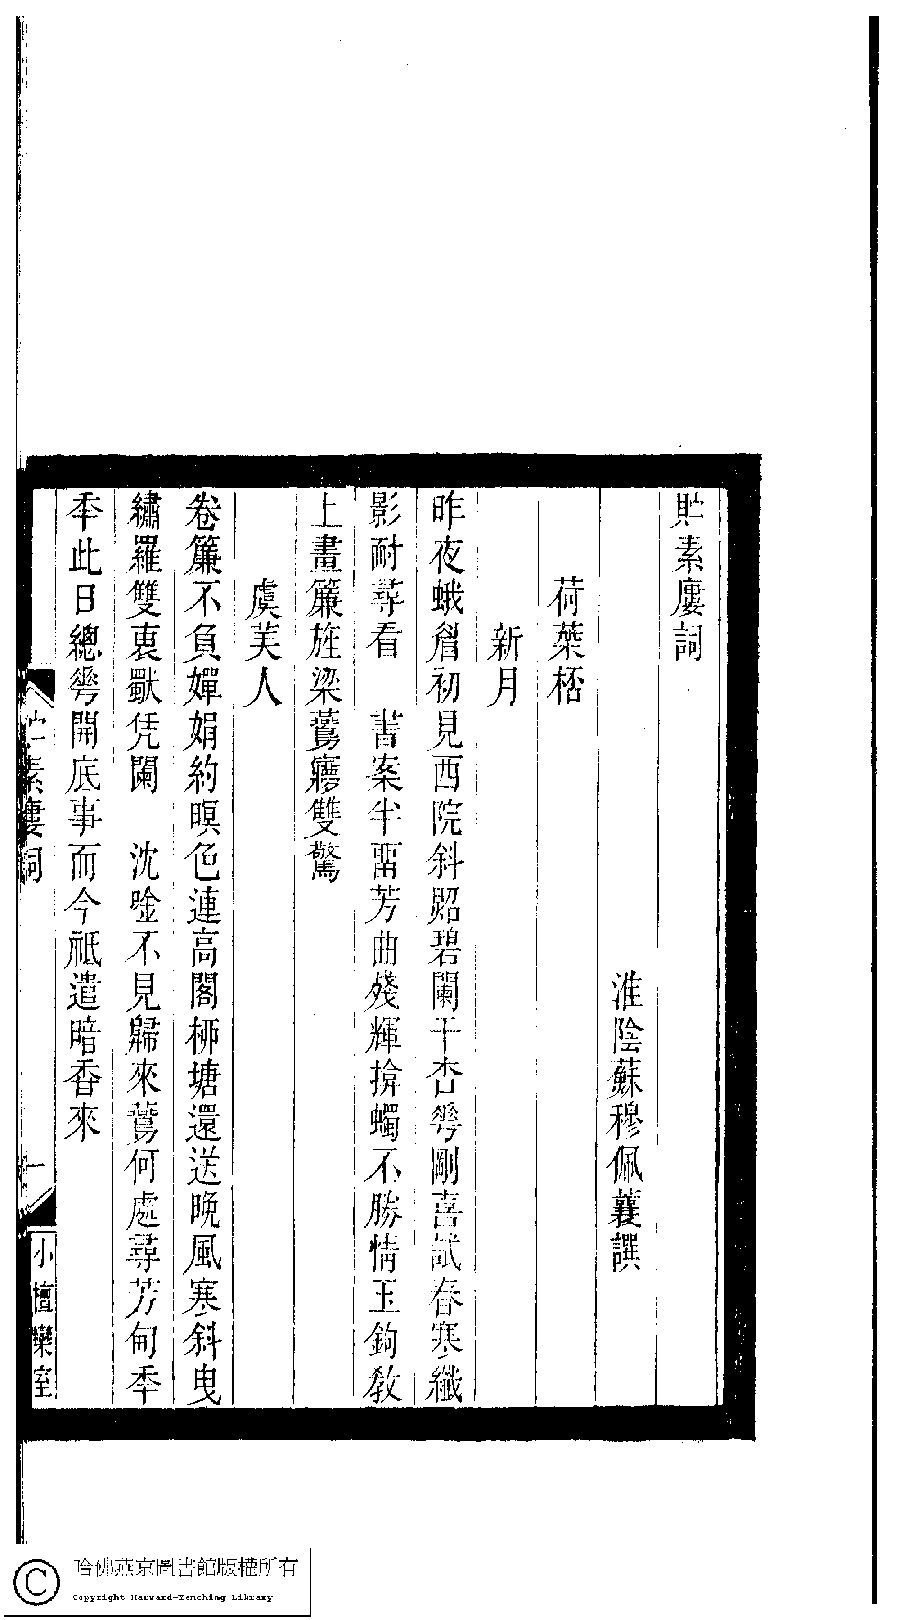 貯素廔詞
淮陰蘇穆佩蘘譔
荷葉桮
新月
昨夜蛾眉初見西院斜照碧闌干杏蕚剛喜試春寒纖
影耐尋看　書案半畱芳曲殘輝揜蠋不勝情玉鉤敎
上畫簾旌梁鷰寤雙驚
虞美人
卷簾不負嬋娟約暝色連高閣桺塘還送晚風寒斜曳
繡羅雙裛猒凭闌　沈唫不見歸來鷰何處尋芳甸秊
秊此日總蕚開底事而今祗遣暗香來
貯素廔詞
一
小檀欒室
哈佛燕京圖書館版權所有
Copyright Harvard-Yenching Library